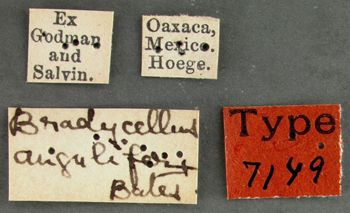 Ex
Godman
and
Salvin.
Oaxaca,
Mexico.
Hoege.
Bradycellus
anguliferis
Bates
Type
7149